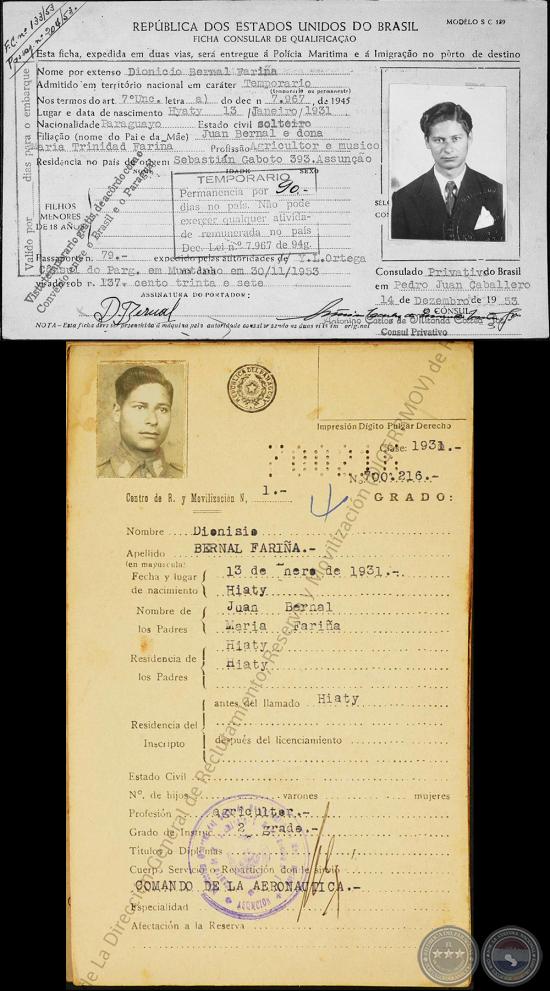 F.C. nº 133/53
REPÚBLICA DOS ESTADOS UNIDOS DO BRASIL
MODÊLO S C 139
FICHA CONSULAR DE QUALIFICAÇÃO
Esta ficha, expedida em duas vias, será entregue á Polícia Maritima e á Imigração no pôrto de destino
Nome por extenso Dionicio Bernal Fariña
Admitido em território nacional em caráter Temporario
(temporario ou permanente)
Nos termos do art. 7ºUnc. letra a) do dec nº 7.967 de 1945
Lugar e data de nascimento Hyaty 13 /Janeiro/1931
Nacionalidade Paraguayo Estado civil solteiro
Filiação (nome do Pai e da Mãe) Juan Bernal e dona
aria Trinidad Fariña Profissão Agricultor e musico
Residencia no país de origem Sebastián Gaboto 393.Assunção
NOME IDADE SEXO
FILHOS
MENORES
DE 18 ANOS
TEMPORARIO
Permanencia por 90.-
dias no país. Não pode
exercer qualquer ativida-
de remunerada no país
Dec. Lei nº 7.967 de 94g.
Válido por dias para o embarque
Visto temporario gratis, de acôrdo com a
Convenio entre o Brasil e o Paraguai
Passaporte nº 79.- expedido pelas autoridades de Y.L.Ortega
Consul do Parg. em em 30/11/1953
visado sob nº 137. cento trinta e sete
Consulado Privativo do Brasil
em Pedro Juan Caballero
14 de Dezembro de 19 53
ASSINATURA DO PORTADOR:
O CÔNSUL
D. Bernal
Antonino Carlos de Miranda Correa
Consul Privativo
NOTA - Esta ficha deve ser preenchida á máquina pela autoridade consular sendo as duas vias em original
REPUBLICA DEL PARAGUAY
Impresión Dígito Pulgar Derecho
Clase: 1931.-
700216
Nº 700.216.-
Centro de R. y Movilización N, 1.-
GRADO:
Nombre Dionisio
Apellido BERNAL FARIÑA.-
(en mayuscula)
Fecha y lugar 13 de nero de 1931.-
de nacimiento Hiaty
Nombre de Juan Bernal
los Padres Maria Fariña
Hiaty
Residencia de Hiaty
los Padres
antes del llamado Hiaty
Residencia del
Inscripto después del licenciamiento
Estado Civil
Nº. de hijos varones mujeres
Profesión agricultor.-
Grado de Instruc. 2 grado.-
Titulos o Diplomas
Cuerpo Servicio o Repartición donde sirvió
COMANDO DE LA AERONAUTICA.-
ASUNCION
Especialidad
Afectación a la Reserva
de La Dirección General de Reclutamiento, Reserva y Movilización (DIGERRMOV) de